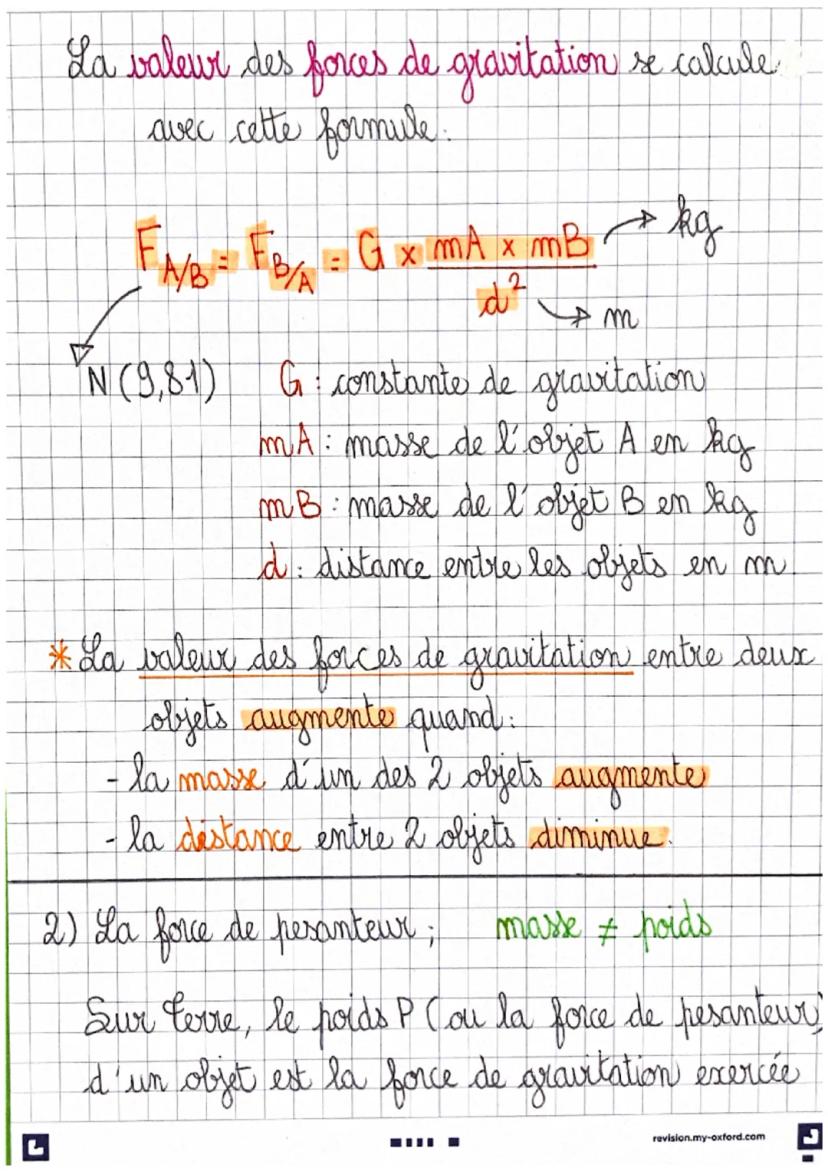 La valeur des forces de gravitation se calcule
avec cette formule:
F A/B = F B/A = G x mA x mB / d² → kg
→ m
N (9,81) G : constante de gravitation
mA : masse de l'objet A en kg
mB : masse de l'objet B en kg
d : distance entre les objets en m
* La valeur des forces de gravitation entre deux
objets augmente quand :
- la masse d'un des 2 objets augmente
- la distance entre 2 objets diminue.
2) La force de pesanteur ; masse ≠ poids
Sur Terre, le poids P (ou la force de pesanteur)
d'un objet est la force de gravitation exercée
revision.my-oxford.com